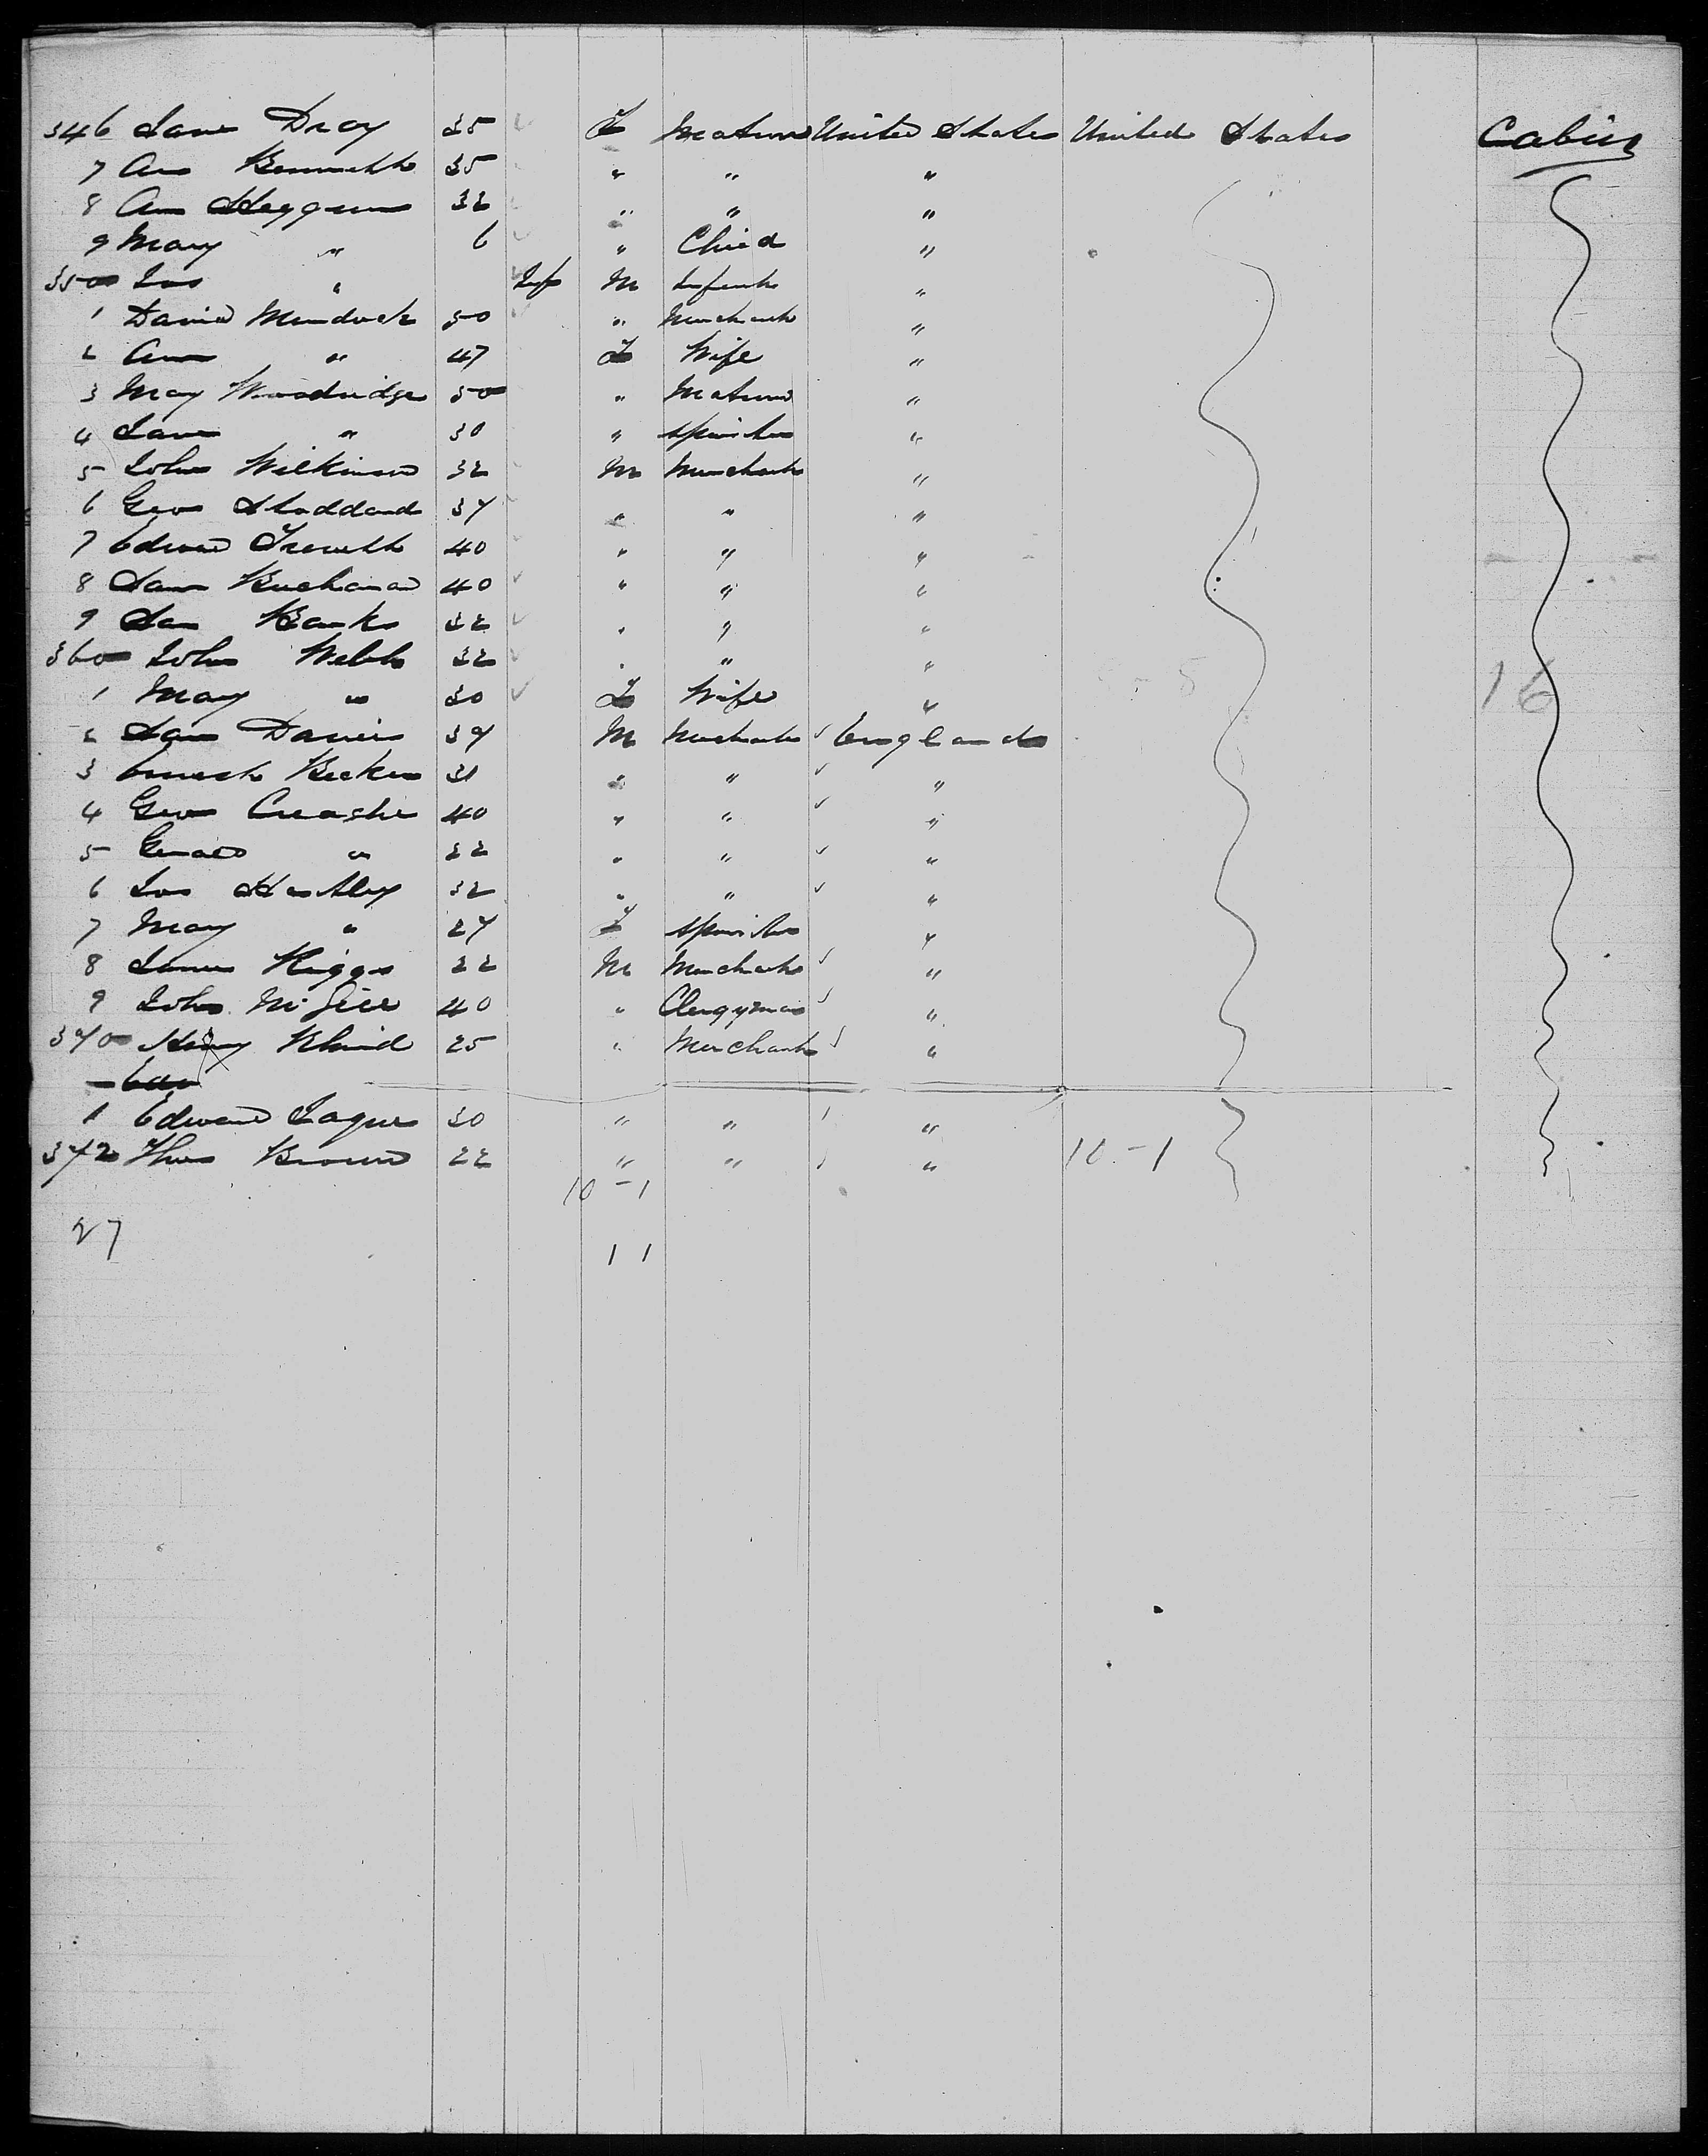 346 Jane Dray 35 F Matron United States United States Cabin
7 Ann Bennett 35 " " "
8 Ann Heggum 32 " " "
9 Mary " 6 " Child "
350 Jas " Inf M Infant "
1 David Murdock 50 " Merchant "
2 Ann " 47 F Wife "
3 May Woodridge 50 " Matron "
4 Jane " 30 " Spinster "
5 John Wilkinson 32 M Merchant "
6 Geo Stoddard 37 " " "
7 Edward Trewett 40 " " "
8 Sam Buchanan 40 " " "
9 Sam Banks 32 " " "
360 John Webb 32 " " "
1 May " 30 F Wife " 16
2 Sam Davis 39 M Merchant England
3 Becker 31 " " "
4 Geo 40 " " "
5 " 22 " " "
6 Jas Hartley 32 " " "
7 May " 27 F Spinster "
8 James Higgs 22 M Merchant "
9 John McGill 40 " Clergyman "
370 Henry 25 " Merchant "
1 Edward Jaques 30 " " "
372 Thos Brown 22 " " " 10-1
10-1
27
11